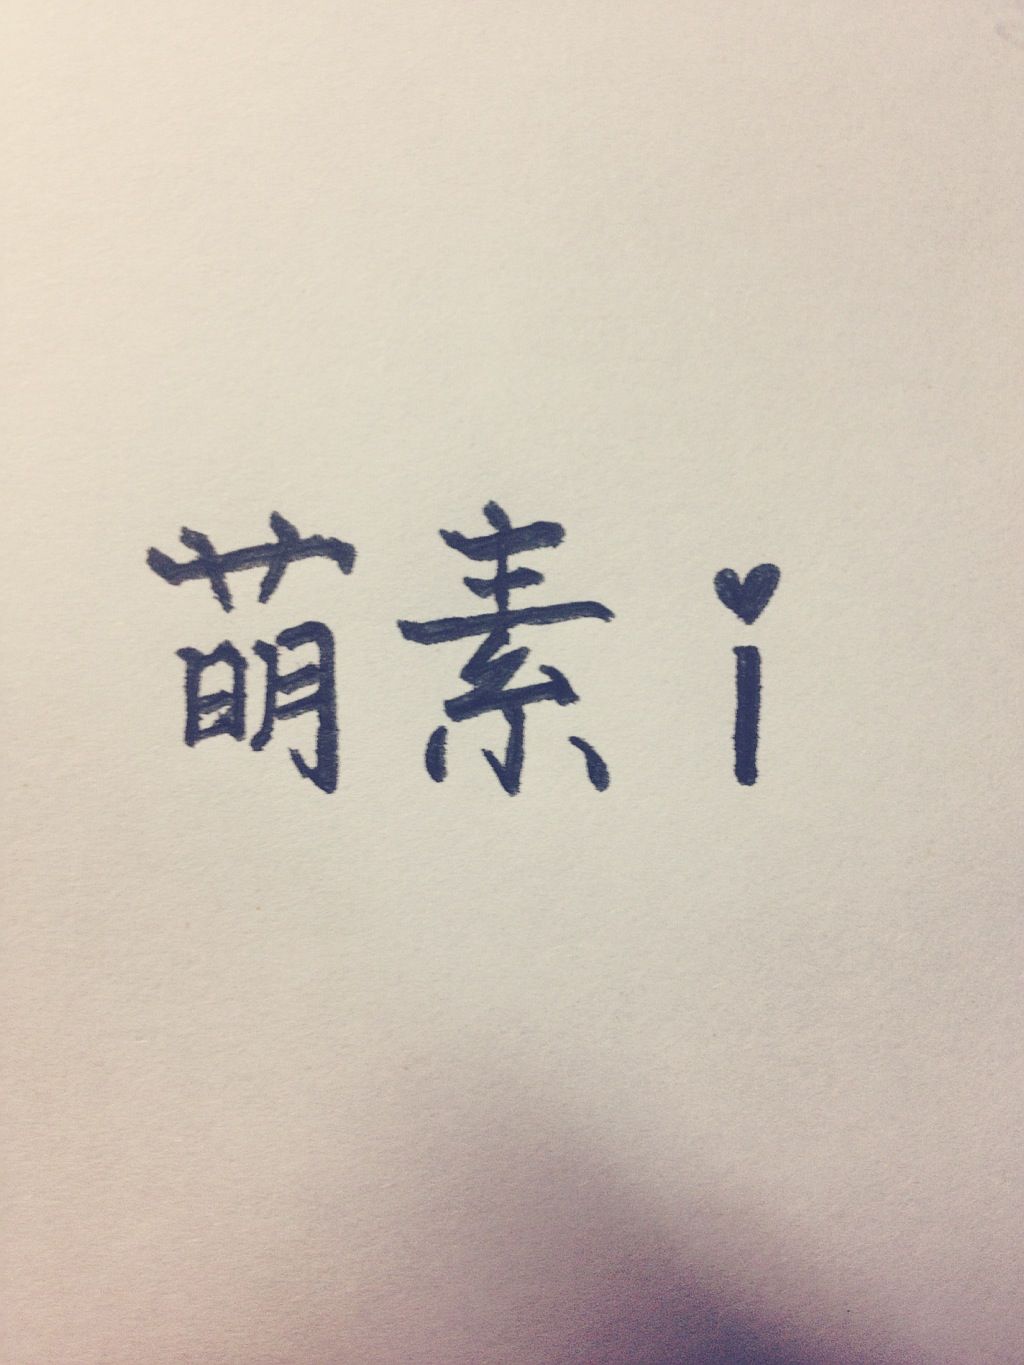 萌素i